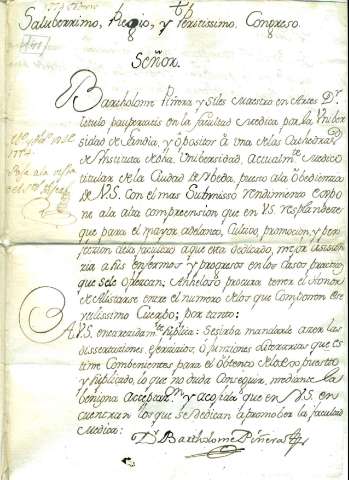 Saluberrimo, Regio, y Peritissimo. Congreso.
Señor.
Bartholome Piñera y Siles Maestro en Artes Dr.
titulo paupertatis en la facultad Medica por la Vniber
sidad de Gandia, y opositor a vna de las Cathedras
de Instituta de dha. Vnibersidad, actualmte. Medico
titular de la Ciudad de Vbeda, puesto a la obediencia
de V.S. con el mas Submisso rendimiento expo
ne a la alta comprension que en V.S. resplandece
que para el mayor adelanto, Cultivo, promocion, y per
feccion de la facultad a que esta dedicado, mejor asisten
zia a his enfermos y progresos en los Casos practicos
que sele ofrezcan; Anheloso procura tener el honor
de Alistarse entre el numero de los que Componen este
verilissimo Cuerpo; por tanto:
A V.S. encarecidamte. suplica: Se sirba mandarle aser las
dissertaciones, exercicios, ó funciones literarias que es
time Combenientes para el obtento de lo Expuesto
y suplicado, lo que no duda Conseguir, mediante la
benigna Acceptazn. y acojida que en V.S. en
cuentran los que se dedican a promober la facultad
Medica:
Dr. Bartholome Piñera